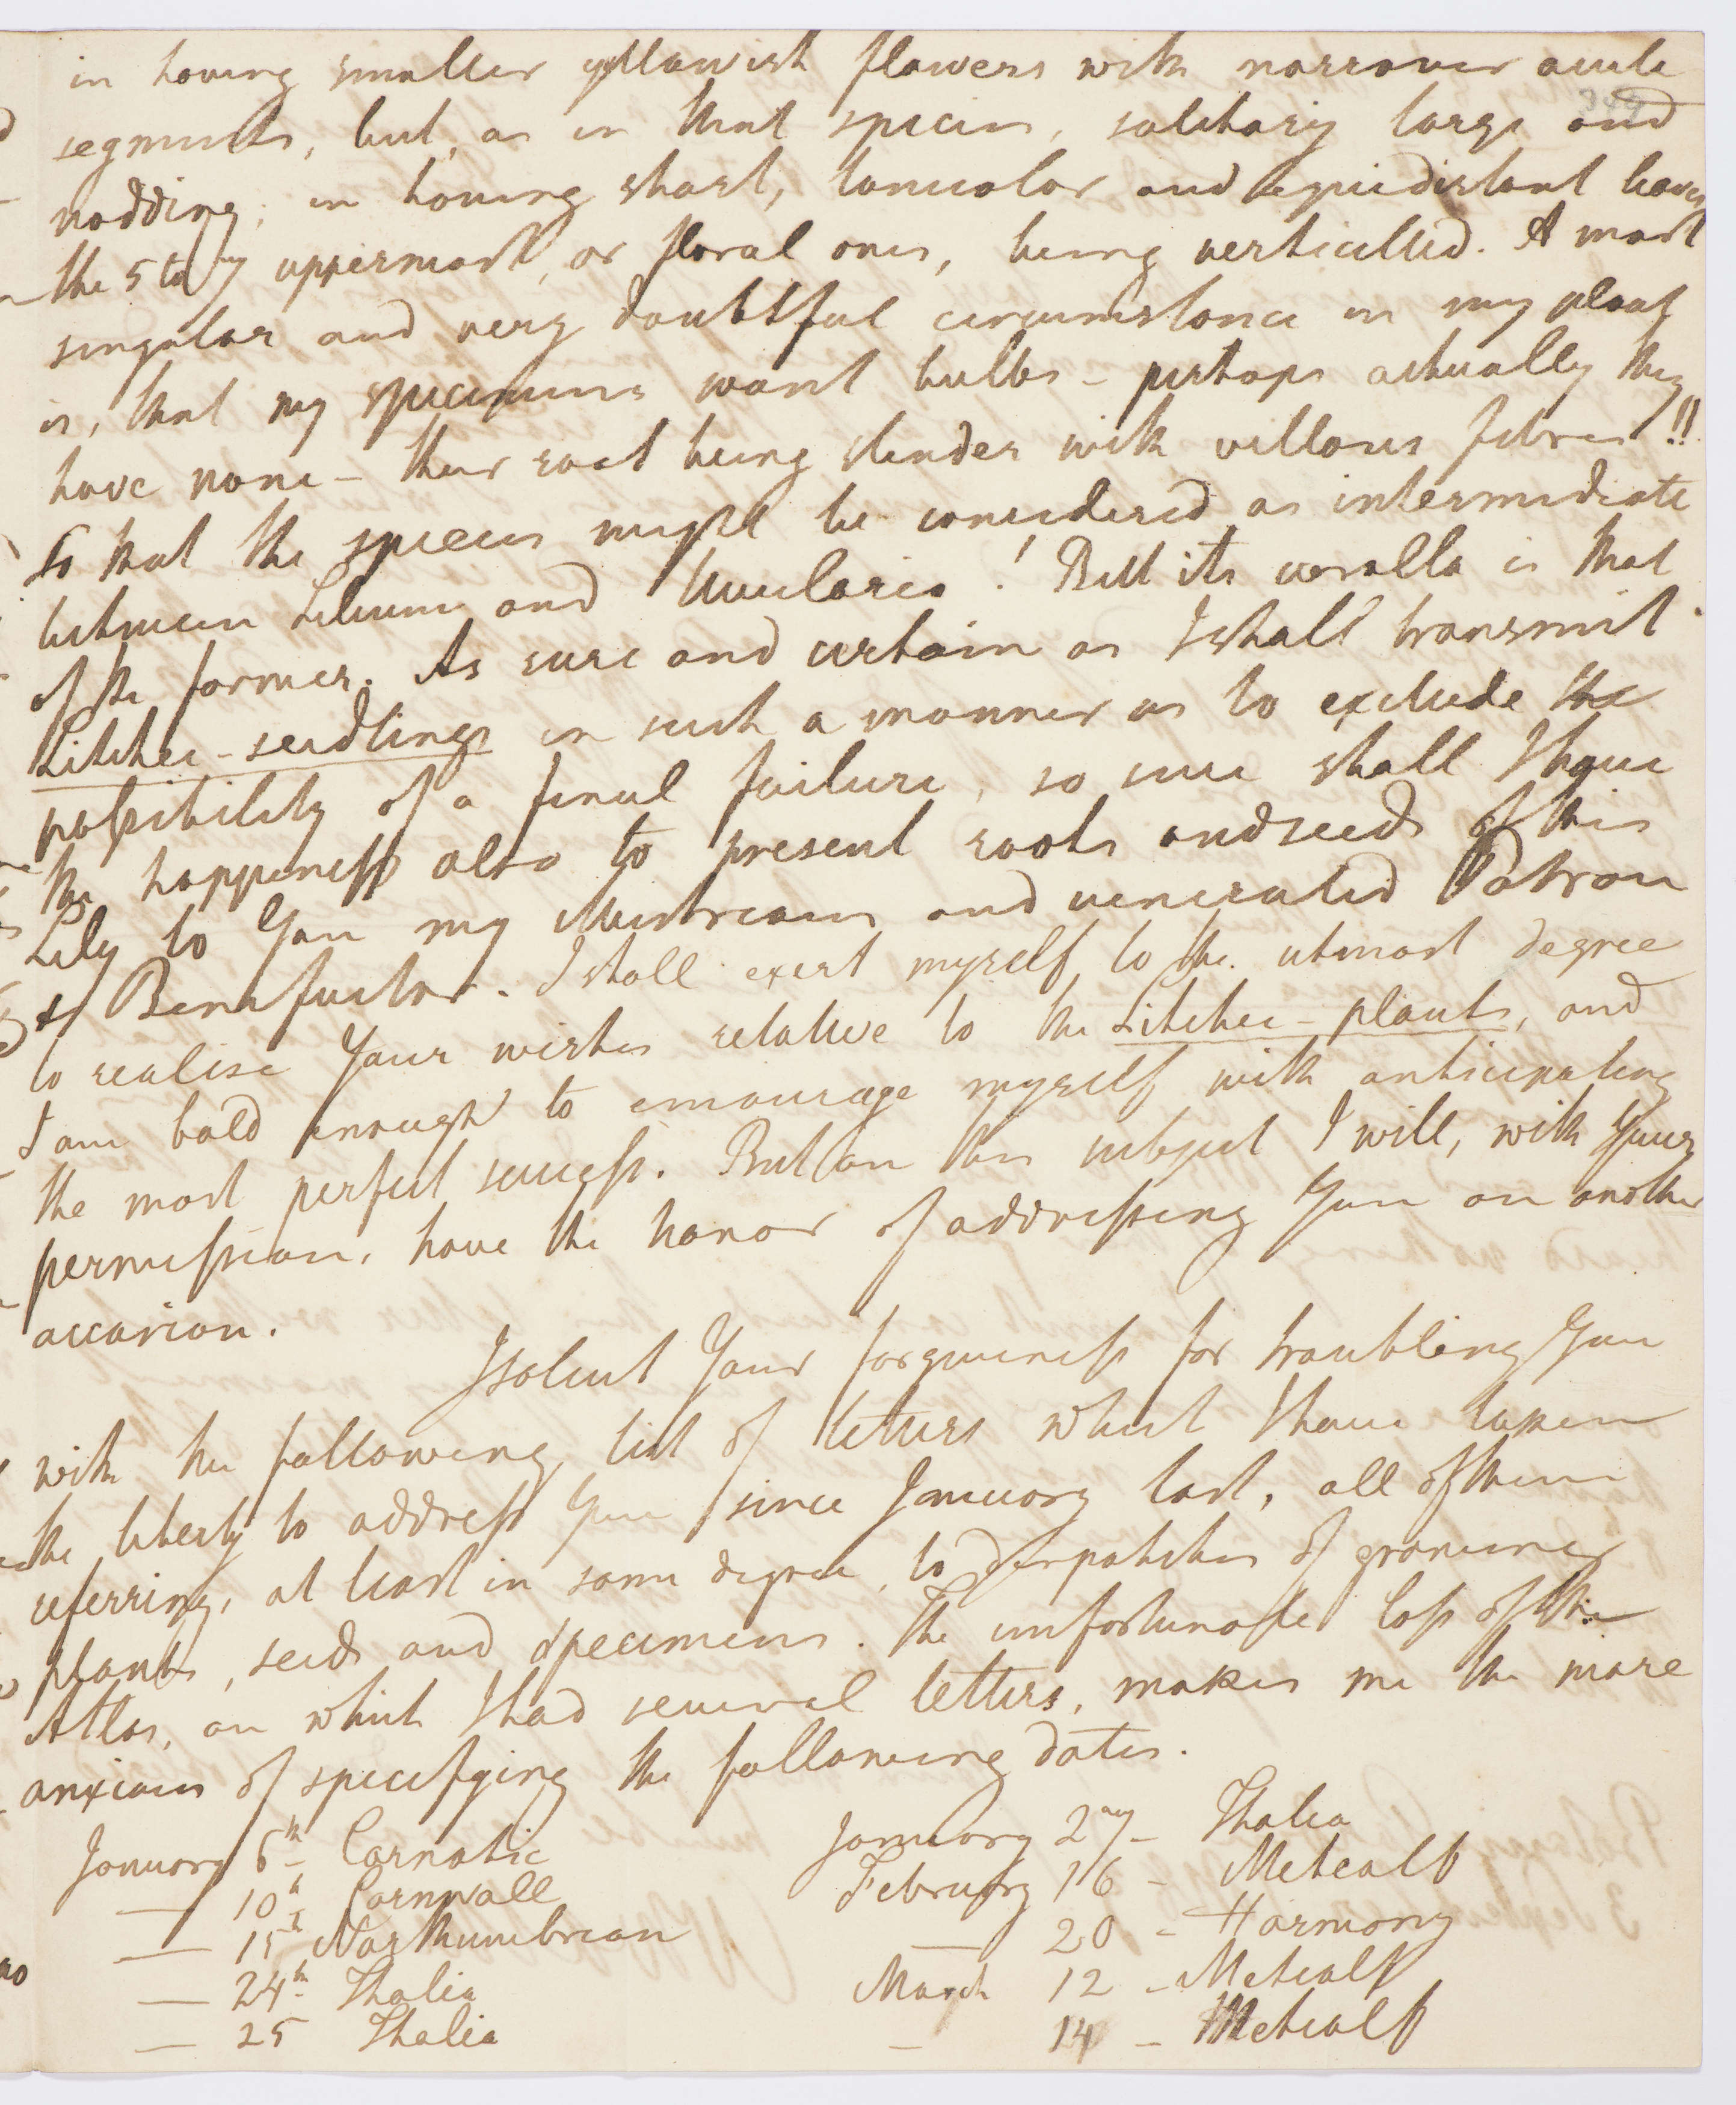 in having smaller yellowish flowers with narrower acute
segments, but, as in that species, solitary large and
nodding; in having short, lanceolar and equidistant leaves
the 5 to 7 uppermost, or floral ones, being verticilled. A most
singular and very doubtful circumstance in my plant
is, that my specimens want bulbs - perhaps actually they
have none - their root being slender with villous fibres!!
So that the species might be considered as intermediate
between Lilium and Uvularia! But its corolla is that
of the former. As sure and certain as I shall transmit
Litchee-seedlings in such a manner as to exclude the
possibility of a final failure, so sure shall I have
the happiness also to present roots and seeds of this
Lily to You my Illustrious and venerated Patron
& Benefactor. I shall exert myself to the utmost degree
to realise Your wishes relative to the Litchee-plants, and
I am bold enough to encourage myself with anticipating
the most perfect success. But on this subject I will, with Your
permission, have the honor of addressing You on another
occasion.
I solicit Your forgiveness for troubling You
with the following list of letters which I have taken
the liberty to address You since January last, all of them
referring, at least in some degree, to despatches of growing
plants, seeds and specimens. The unfortunate loss of the
Atlas, on which I had several letters, makes me the more
anxious of specifying the following dates.
January 6th - Carnatic January 27 - Thalia
— 10th Cornwall February 16 - Metcalf
— 15th Northumbrian — 20 - Harmony
— 24th Thalia March 12 - Metcalf
— 25 Thalia - 14 - Metcalf